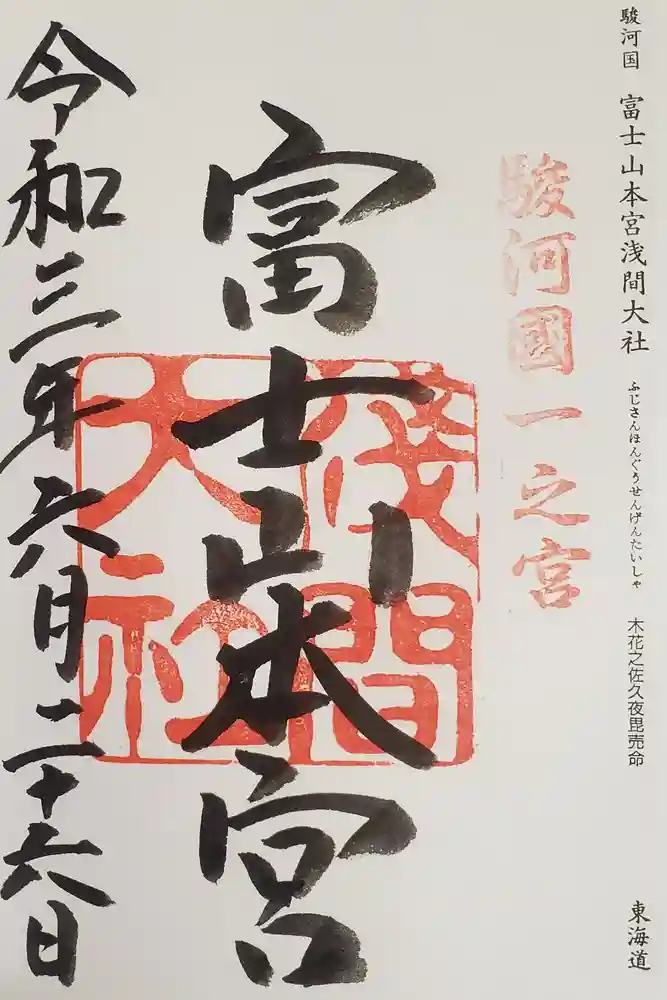 駿河国 富士山本宮浅間大社 ふじさんほんぐうせんげんたいしゃ 木花之佐久夜毘売命 東海道
駿河國一之宮
富士山本宮
淺間
大社
令和三年六月二十六日